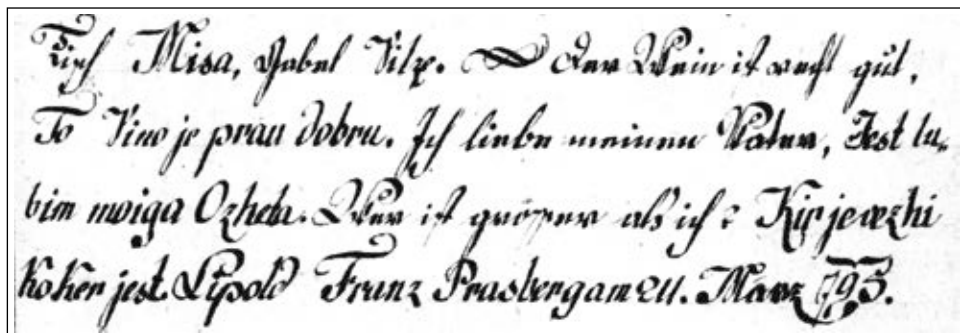 Tisch Misa, Gabel Vilze. Der Wein ist recht gut,
To Vino je prau dobru. Ich liebe meinen Vater, Jest lu-
bim moiga Ozheta. Wer ist größer als ich? Kir je vezhi
koker jest. Lipold Franz Prasberg am 24. Marz 795.